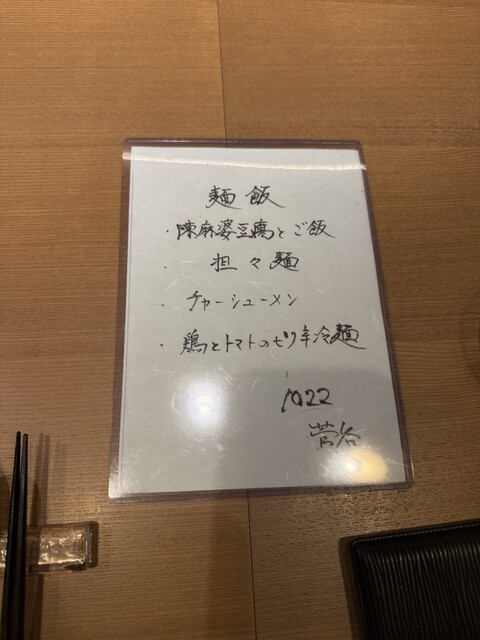 麺飯
・陳麻婆豆腐とご飯
・担々麺
・チャーシューメン
・鶏とトマトのピリ辛冷麺
1022
菅谷